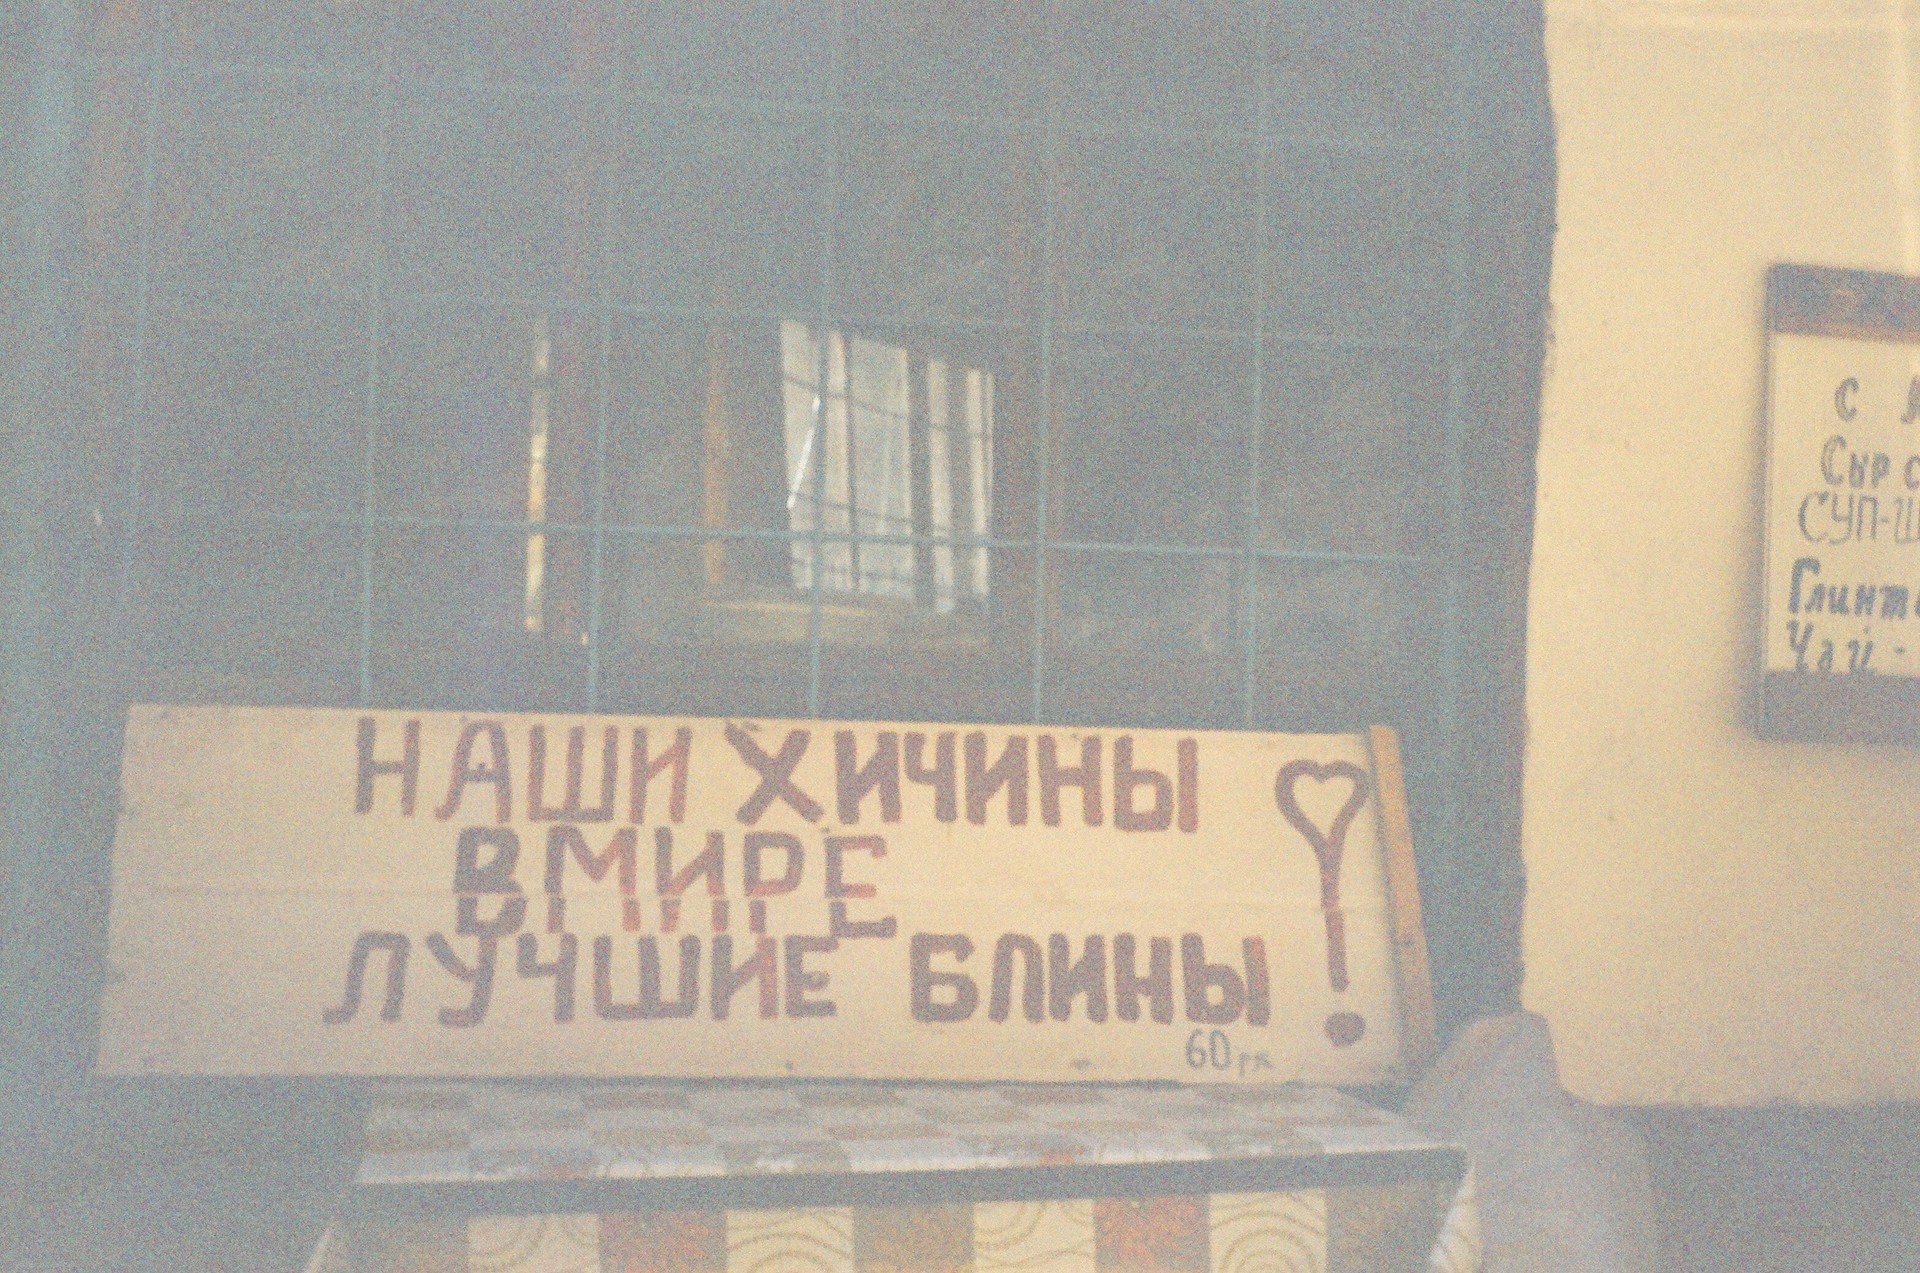 НАШИ ХИЧИНЫ
В МИРЕ
ЛУЧШИЕ БЛИНЫ !
60
С
Сыр с
СУП-Ш
Глинт
Чай -